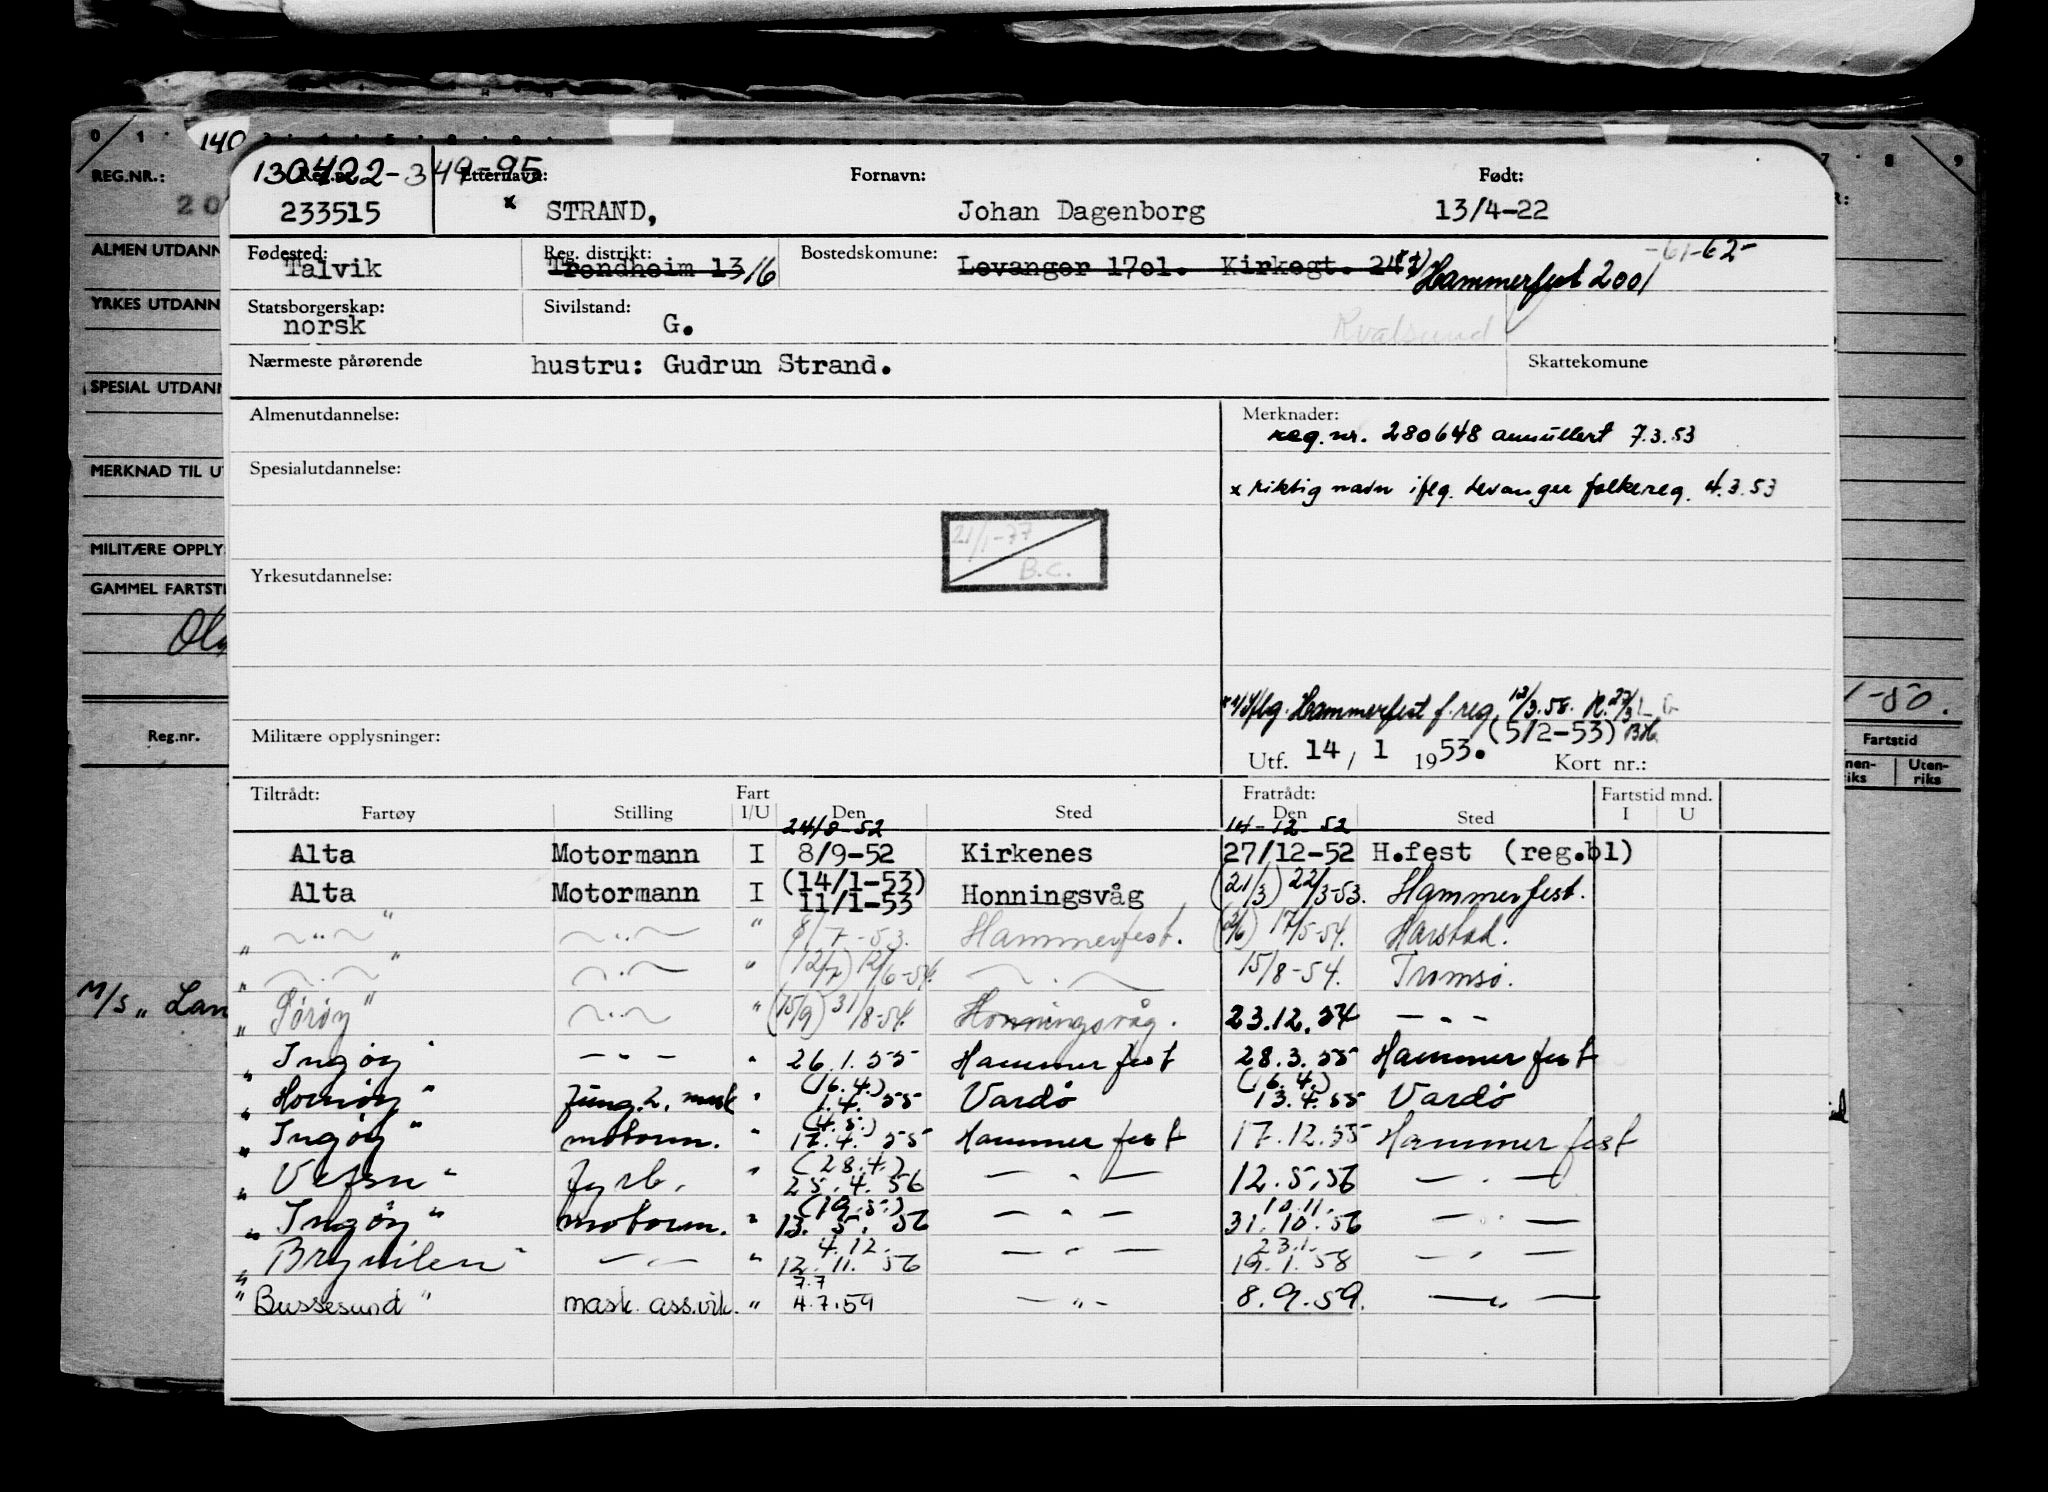 140
REG.NR.:
20
ALMEN UTDANN
YRKES UTDANN
SPESIAL UTDANN
MERKNAD TIL U
MILITÆRE OPPLY
GAMMEL FARTST
Reg.nr.
M/S „ Lan
130422-349-95
Etternavn: Fornavn: Født:
233515 x STRAND, Johan Dagenborg 13/4-22
Fødested: Reg. distrikt: Bostedskomune: -61-62-
Talvik Trondheim 13/16 Levanger 1701. Kirkegt. 24 Hammerfest 2001
Statsborgerskap: Sivilstand:
norsk G. Kvalsund
Nærmeste pårørende hustru: Gudrun Strand. Skattekomune
Almenutdannelse: Merknader:
reg.nr. 280648 annullert 7.3.53
Spesialutdannelse:
x riktig navn iflg. Levanger folkereg. 4.3.53
21/1-77
B.C.
Yrkesutdannelse:
Hammerfest f.reg. 12/3.58.
Militære opplysninger: (5/2-53)
Utf. 14 / 1 1953. Kort nr.:
Tiltrådt: Fart Fratrådt: Fartstid mnd.
Fartøy Stilling I/U Den Sted Den Sted I U
24/8-52 14-12-52
Alta Motormann I 8/9-52 Kirkenes 27/12-52 H.fest (reg.bl)
(14/1-53)
Alta Motormann I 11/1-53 Honningsvåg (21/3) 22/3-53. Hammerfest.
„ —„— " —„— " 8/7-53. Hammerfest. 17/5-54. Harstad.
„ —„— " —„— " 12/6-54. —„— 15/8-54. Tromsø.
„ Sørøy " —„— " (15/9) 31/8-54. Honningsvåg. 23.12.54 —„—
„ Ingøy " —„— " 26.1.55 Hammerfest 28.3.55 Hammerfest
(16.4.) (16.4.)
„ Hornøy " Jung. 2. mask " 1.4.55 Vardø 13.4.55 Vardø
(4.5.)
„ Ingøy " motorm. " 17.4.55 Hammerfest 17.12.55 Hammerfest
(28.4.)
„ Vefsn " fyrb. " 25.4.56 —„— 12.5.56 —„—
(19.5.) 10.11.
„ Ingøy " motorm. " 13.5.56 —„— 31.10.56 —„—
4.12. 23.1.
„ Brynilen " —„— " 12.11.56 —„— 19.1.58 —„—
7.7
" Bussesund " mask. ass.vik. " 4.7.59 —„— 8.9.59. —„—
Fartstid
Uten-
riks